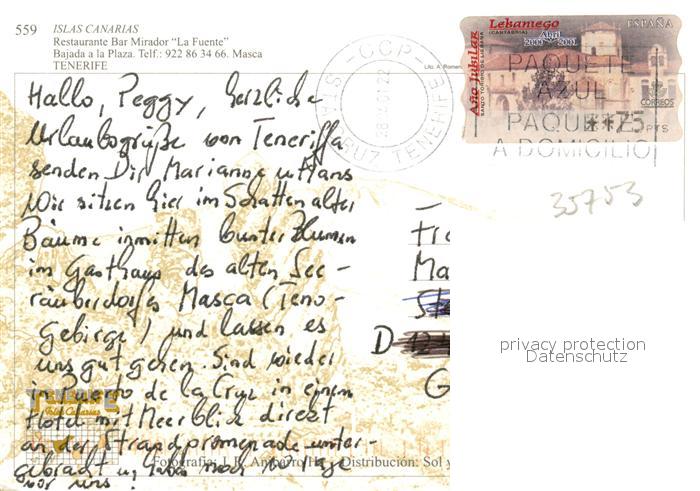 559 ISLAS CANARIAS
Restaurante Bar Mirador "La Fuente"
Bajada a la Plaza. Telf.: 922 86 34 66. Masca
TENERIFE
Lito. A. Romero
CCP
STA CRUZ TENERIFE
Año Jubilar
SANTO TORIBIO DE LIÉBANA
Lebaniego
(CANTABRIA)
Abril
2000 2001
ESPAÑA
CORREOS
**75 PTS
PAQUETE
AZUL
PAQUETES
A DOMICILIO
35753
Hallo, Peggy, herzliche
Urlaubsgrüße von Teneriffa
senden Dir Marianne u. Hans
Wir sitzen hier im Schatten alter
Bäume inmitten bunter Blumen
im Gasthaus des alten See-
räuberdorfes Masca (Teno-
Gebirge) und lassen es
uns gut gehen. Sind wieder
in Puerto de la Cruz in einem
Hotel mit Meerblick direkt
an der Strandpromenade unter-
gebracht u. noch Tage
vor uns!
Fr
Ma
D
G
privacy protection
Datenschutz
TENERIFE
Islas Canarias
Fotografía: J. R. Distribución: Sol y